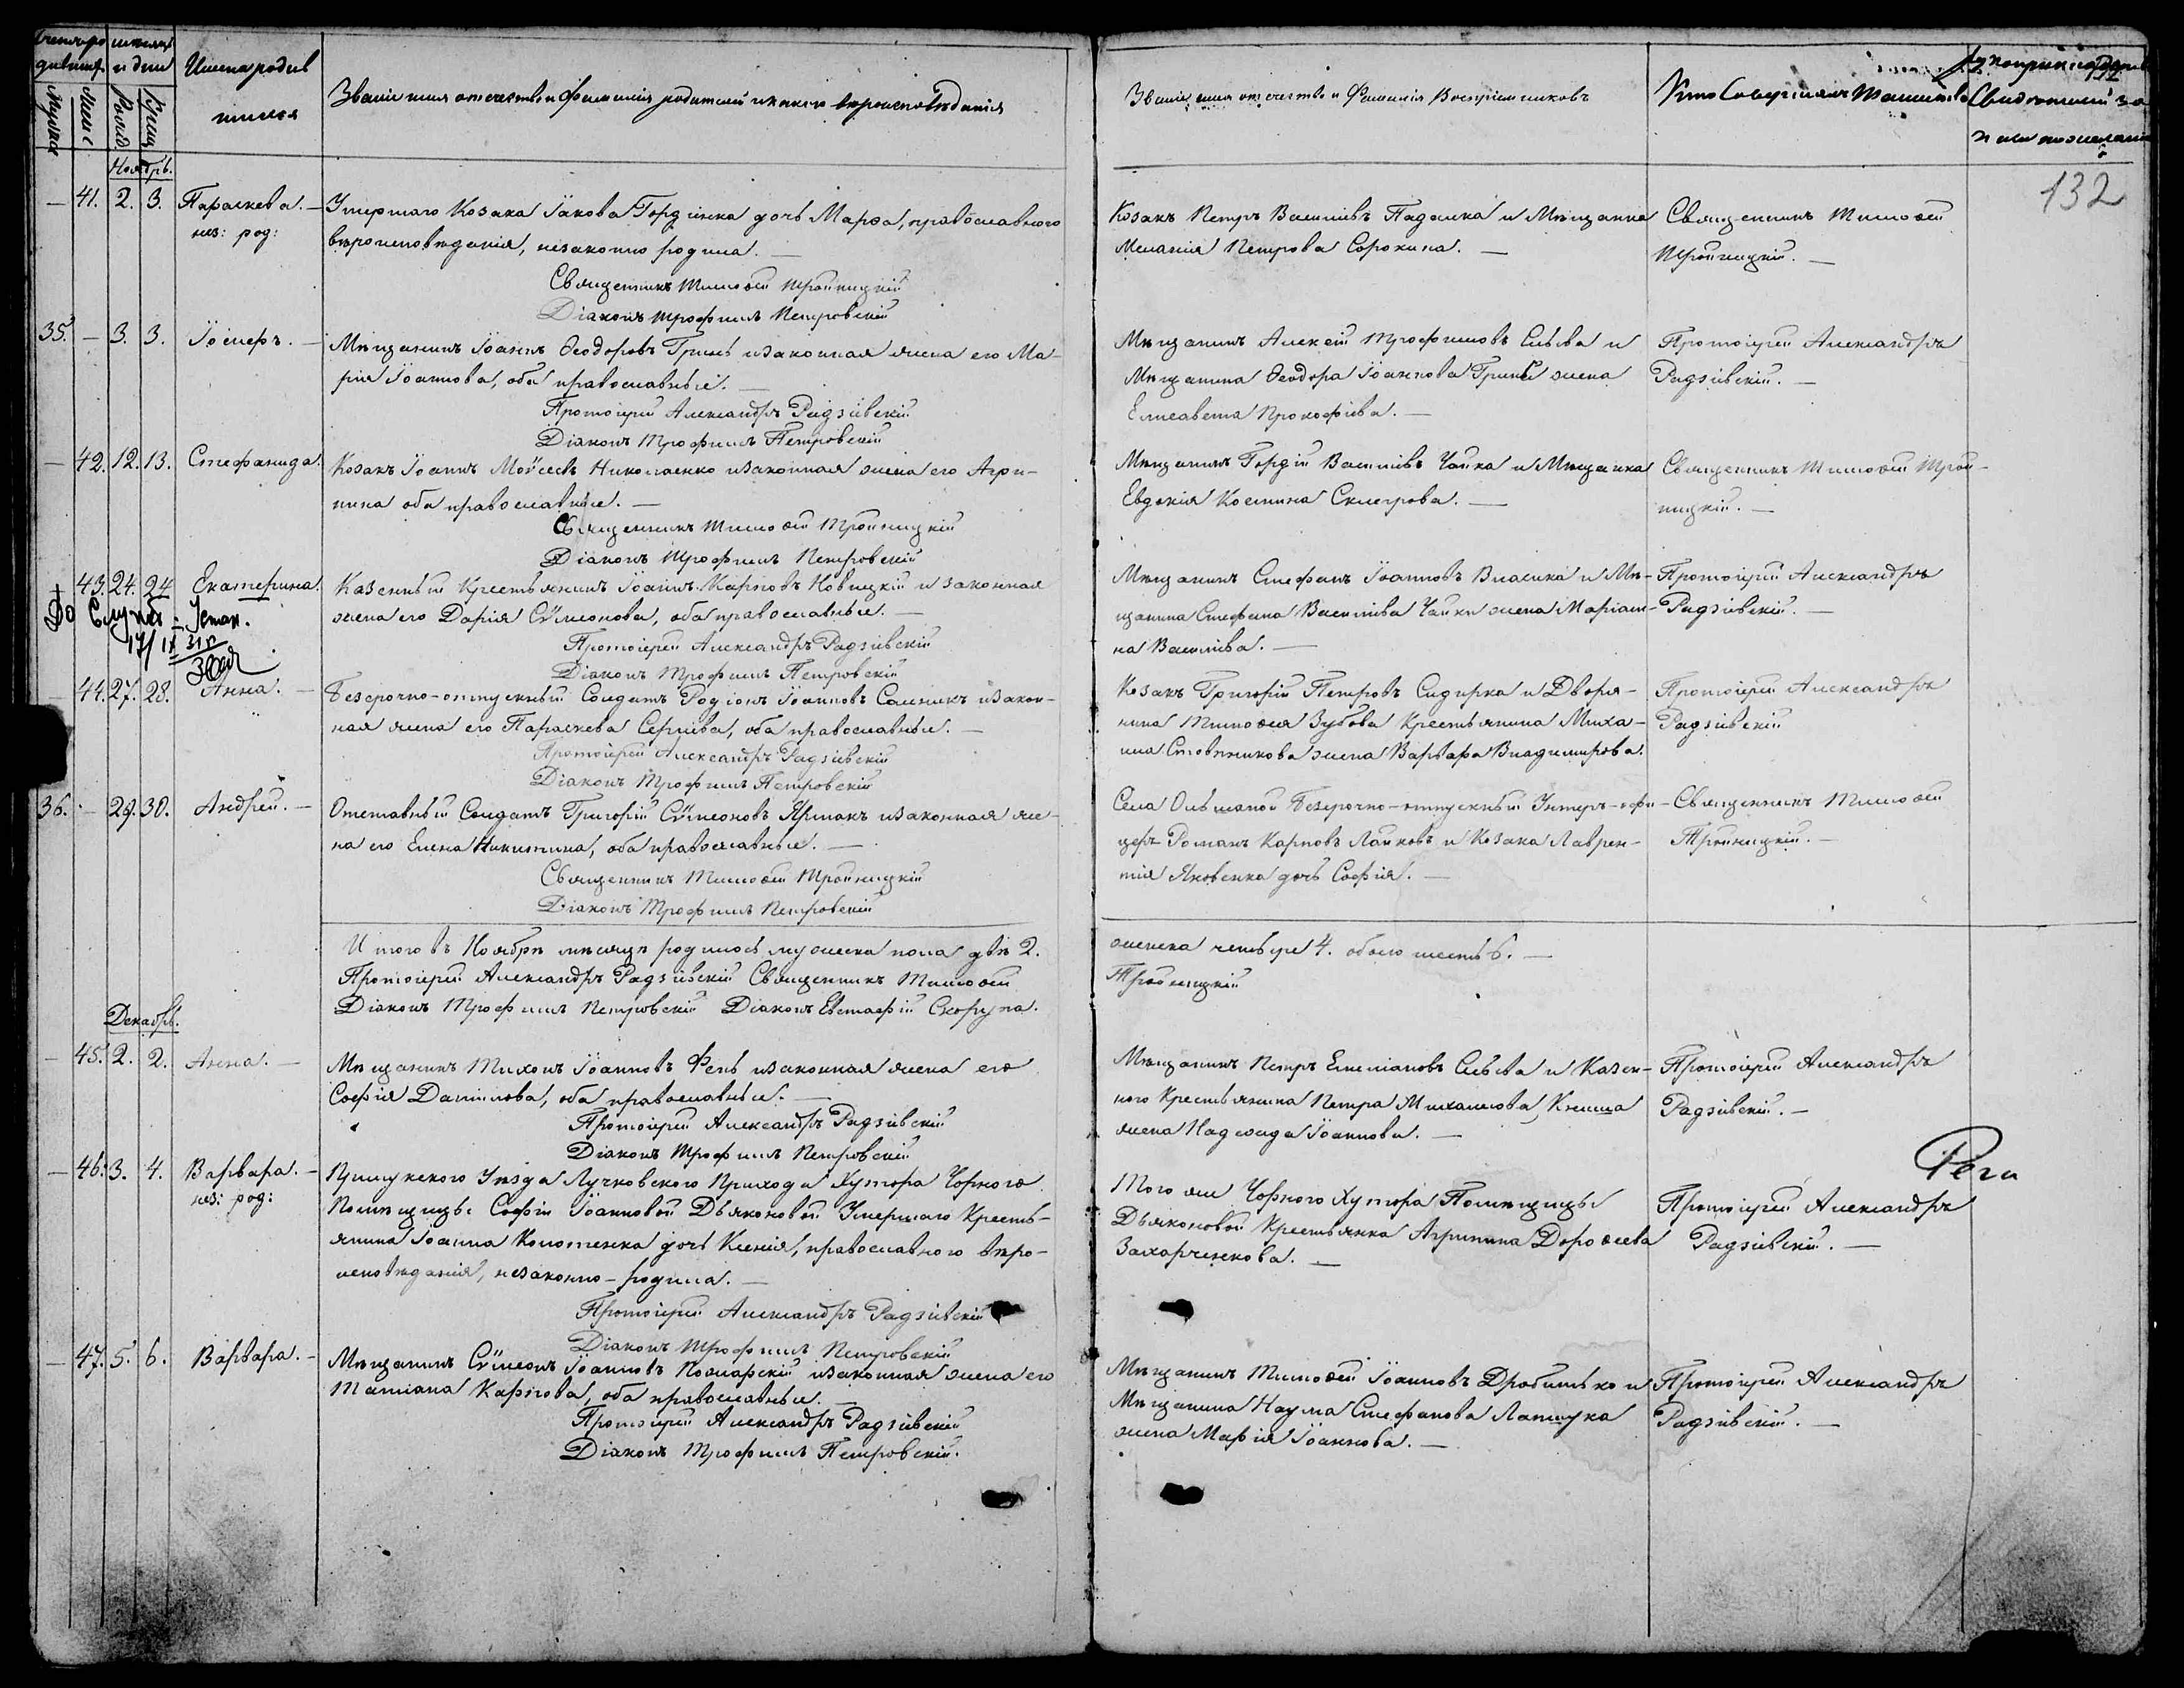 Имена родив
шихся
Званіе имя отчество и фамилія родителей и какого вѣроисповѣданія
Званіе имя отчество и Фамилія Воспріемниковъ
Кто Совершалъ Таинство
132
Ноябрь.
— 41. 2. 3. Параскева. —
нез: род:
Умершаго Козака Іакова Гордіенка дочь Марѳа, православного
вѣроисповѣданія, незаконно родила. —
Священникъ Тимоѳей Тройницкій
Діаконъ Трофимъ Петровскій
Козакъ Петръ Василіевъ Падалка и Мѣщанка
Меланія Петрова Сорокина. —
Священникъ Тимоѳей
Тройницкій. —
35. — 3. 3. Іосифъ. —
Мѣщанинъ Іоаннъ Ѳеодоровъ Гринь и законная жена его Ма-
рія Іоаннова, оба православные. —
Протоіерей Александръ Радзіевскій
Діаконъ Трофимъ Петровскій
Мѣщанинъ Алексѣй Трофимовъ Сльва и
Мѣщанина Ѳеодора Іоаннова Гриня жена
Елисавета Прокофіева. —
Протоіерей Александръ
Радзіевскій. —
— 42. 12. 13. Стефанида.
Козакъ Іоаннъ Моѵсеевъ Николаенко и законная жена его Агри-
пина оба православные. —
Священникъ Тимоѳей Тройницкій
Діаконъ Трофимъ Петровскій
Мѣщанинъ Гордій Василіевъ Чайка и Мѣщанка
Евдокія Космина Склярова. —
Священникъ Тимоѳей Трой-
ницкій. —
43. 24. 24 Екатерина.
Казенный Крестьянинъ Іоаннъ Карповъ Новицкій и законная
жена его Дарія Сѵмеонова, оба православные. —
Протоіерей Александръ Радзіевскій
Діаконъ Трофимъ Петровскій
Мѣщанинъ Стефанъ Іоанновъ Власика и Мѣ-
щанина Стефана Василіева Чайки жена Маріам-
на Василіева. —
Протоіерей Александръ
Радзіевскій. —
17/IX 31р
— 44. 27. 28. Анна. —
Безсрочно-отпускный Солдатъ Родіонъ Іоанновъ Санникъ и закон-
ная жена его Параскева Сергіева, оба православные. —
Протоіерей Александръ Радзіевскій
Діаконъ Трофимъ Петровскій
Козакъ Григорій Петровъ Сидирка и Дворя-
нина Тимоѳея Зубова Крестьянина Миха-
ила Стовпникова жена Варвара Владимирова.
Протоіерей Александръ
Радзіевскій
36. — 29. 30. Андрей. —
Отставный Солдатъ Григорій Сѵмеоновъ Ярмакъ и законная же-
на его Елена Никитина, оба православные. —
Священникъ Тимоѳей Тройницкій
Діаконъ Трофимъ Петровскій
Села Ольшаной Безсрочно-отпускный Унтеръ-офи-
церъ Романъ Карповъ Лайковъ и Козака Лаврен-
тія Яковенка дочь Софія. —
Священникъ Тимоѳей
Тройницкій. —
Итого въ Ноябрѣ мѣсяцѣ родилось мужеска пола двѣ 2.
женска четыре 4. обоего шесть 6. —
Протоіерей Александръ Радзіевскій Священникъ Тимоѳей
Тройницкій
Діаконъ Трофимъ Петровскій Діаконъ Евстафій Скорупа.
Декабрь.
— 45. 2. 2. Анна. —
Мѣщанинъ Тихонъ Іоанновъ Фень и законная жена его
Софія Даніилова, оба православные. —
Протоіерей Александръ Радзіевскій
Діаконъ Трофимъ Петровскій
Мѣщанинъ Петръ Емеліановъ Сльва и Казен-
ного Крестьянина Петра Михаилова Книша
жена Надежда Іоаннова. —
Протоіерей Александръ
Радзіевскій. —
— 46. 3. 4. Варвара. —
нез: род:
Прилукского Уѣзда Лучковского Прихода Хутора Чорного
Помѣщицы Софіи Іоанновой Дьяконовой Умершаго Кресть-
янина Іоанна Колотенка дочь Ксенія, православного вѣро-
исповѣданія, незаконно-родила. —
Протоіерей Александръ Радзіевскій
Діаконъ Трофимъ Петровскій
Того же Чорного Хутора Помѣщицы
Дьяконовой Крестьянка Агрипина Дороѳеева
Захарченкова. —
Протоіерей Александръ
Радзіевскій. —
— 47. 5. 6. Варвара. —
Мѣщанинъ Сѵмеонъ Іоанновъ Пожарскій и законная жена его
Татіана Карпова, оба православные. —
Протоіерей Александръ Радзіевскій
Діаконъ Трофимъ Петровскій.
Мѣщанинъ Тимоѳей Іоанновъ Дробитько и
Мѣщанина Наума Стефанова Лапшука
жена Марія Іоаннова. —
Протоіерей Александръ
Радзіевскій. —